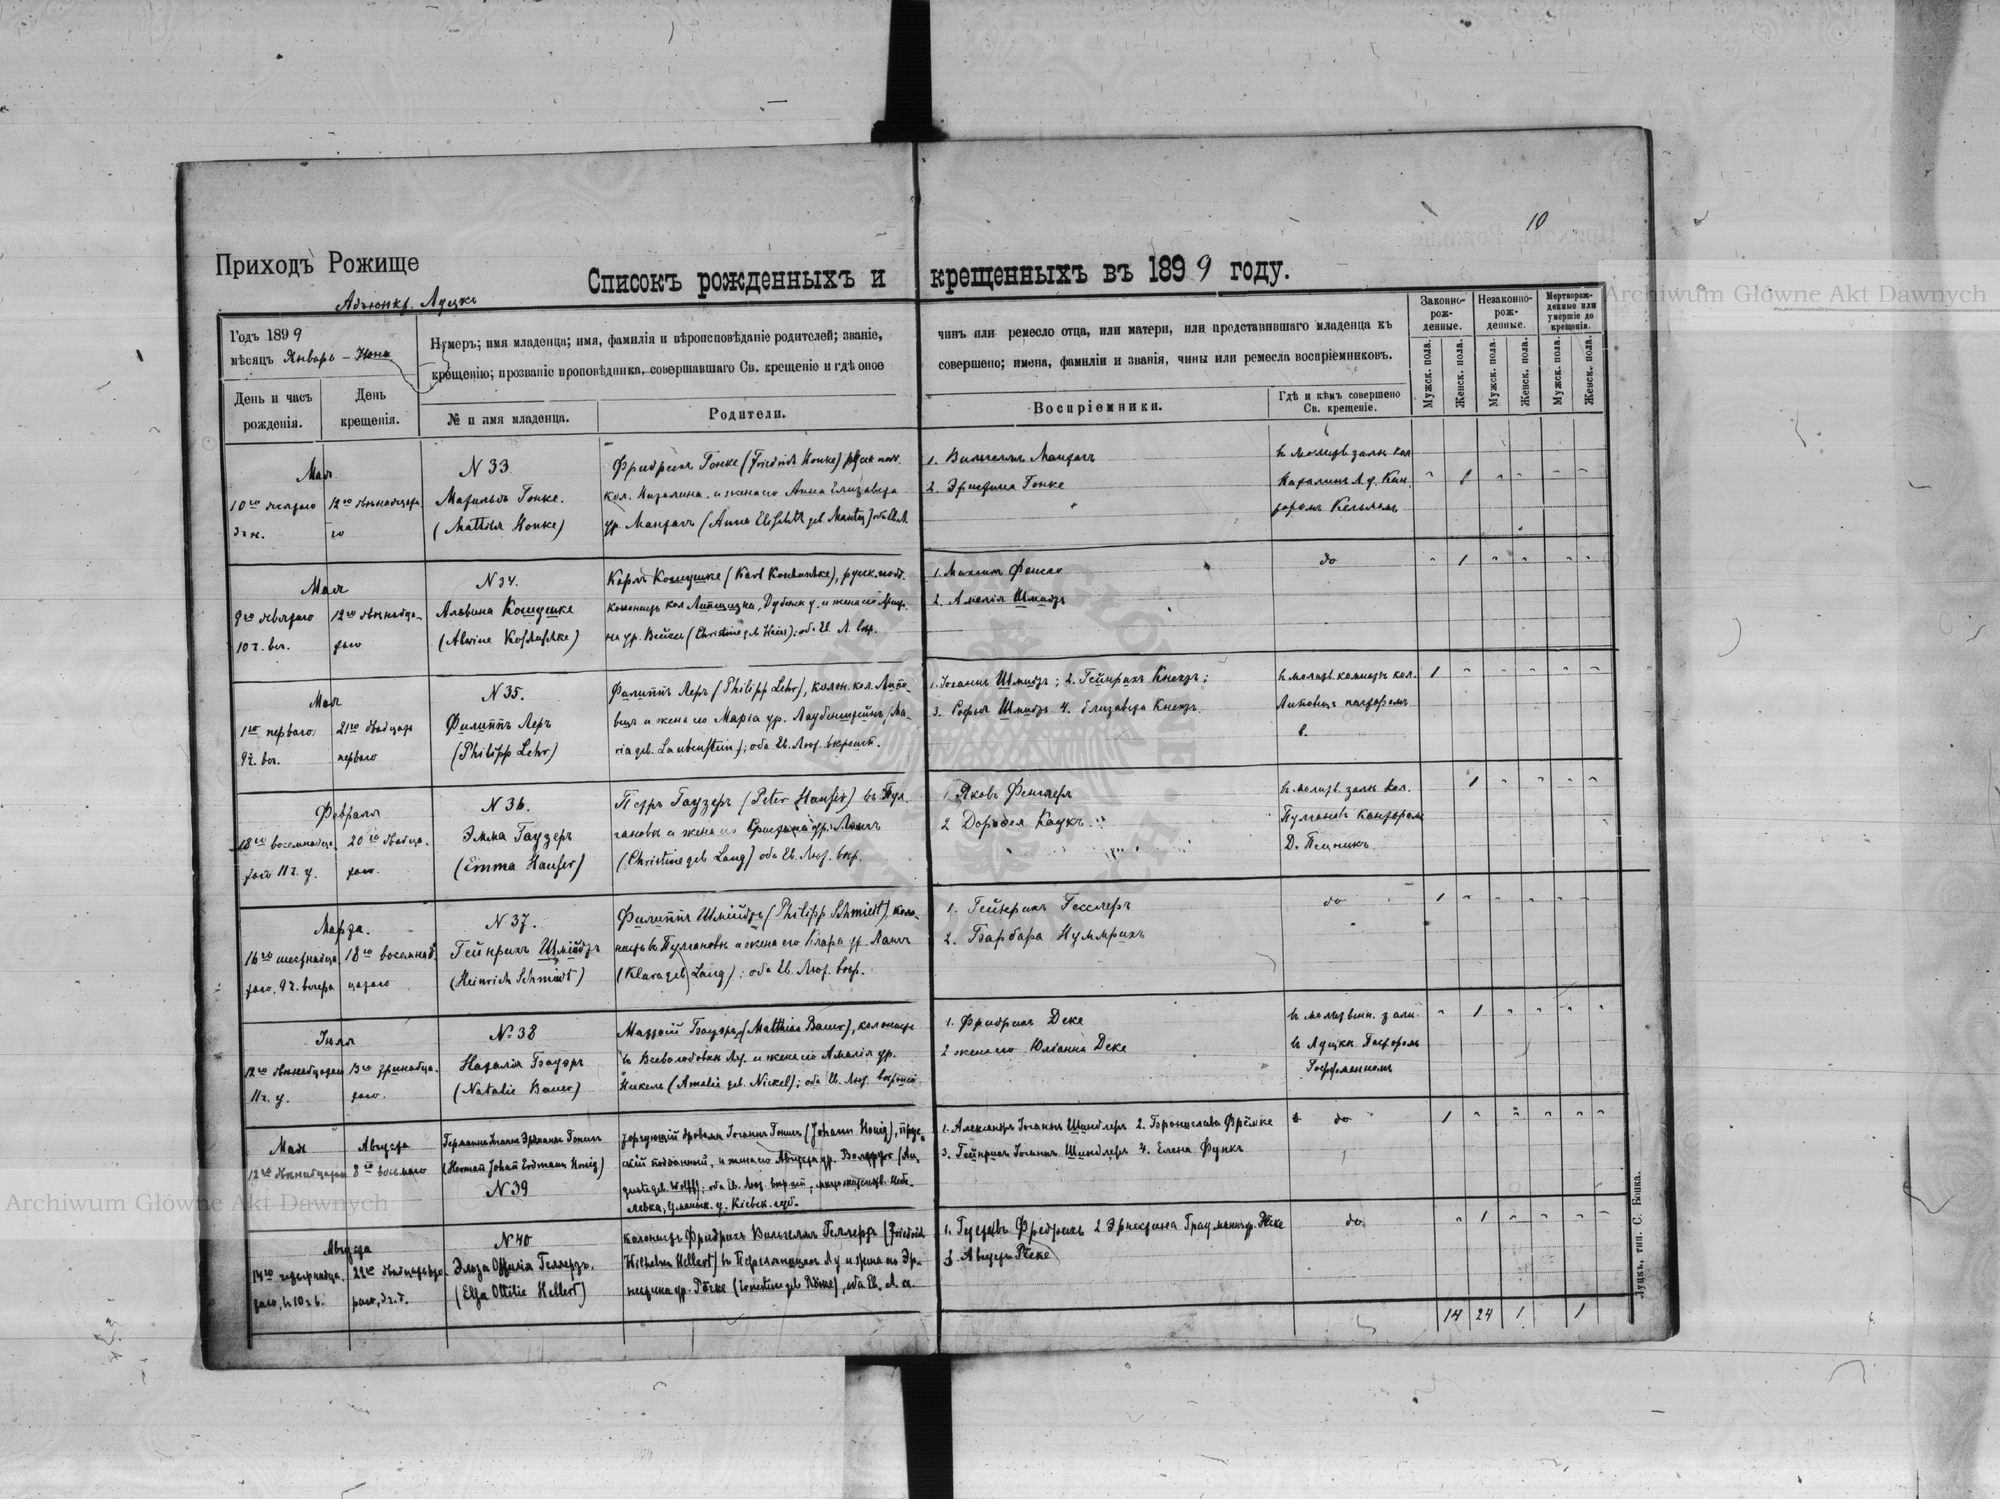 10
Приходъ Рожище
Адъюнкт. Луцкъ
Списокъ рожденныхъ и крещенныхъ въ 1899 году.
Годъ 1899
мѣсяцъ Январь – Юня
День и часъ рожденія.
День крещенія.
Нумеръ; имя младенца; имя, фамилія и вѣроисповѣданіе родителей; званіе, чинъ или ремесло отца, или матери, или представившаго младенца къ
крещенію; прозваніе проповѣдника, совершавшаго Св. крещеніе и гдѣ оное совершено; имена, фамиліи и званія, чины или ремесла воспріемниковъ.
№ и имя младенца.
Родители.
Воспріемники.
Гдѣ и кѣмъ совершено Св. крещеніе.
Законно-рожденные.
Незаконно-рожденные.
Мертворожденные или умершіе до крещенія.
Мужск. пола.
Женск. пола.
Мужск. пола.
Женск. пола.
Мужск. пола.
Женск. пола.
Мая
10го десятаго
3 ч. н.
12го двѣнадцата
го
N 33.
Матильда Гонке.
(Mathilde Honke)
Фридрихъ Гонке (Friedrich Honke) русск. подд.
кол. и жена его Анна Елизавета
ур. Мантай (Anna Elisabeth geb. Mantey) оба Ев. Л.
1. Вильгельмъ Мантай
2. Эрнстина Гонке
въ молитв. залѣ кол.
Кан
торомъ Кельмъ
1
Мая
9го девятаго
10 ч. веч.
12го двѣнадца-
таго
N 34.
Альвина Кошушке
(Alwine Koschuschke)
Карлъ Кошушке (Karl Koschuschke), русск. подд.
колонистъ кол. Дубенск у. и жена его Христи-
на ур. Вейсъ (Christine geb. Heins); оба Ев. Л. вѣр.
1.
2. Амалія Шмидтъ
do
1
Мая
1го перваго
9 ч. веч.
21го двадцать
перваго
N 35.
Филиппъ Леръ
(Philipp Lehr)
Филиппъ Леръ (Philipp Lehr), колон. кол. Липо-
вецъ и жена его Марія ур. Лаубенштейнъ (Ma-
ria geb. Laubenstein); оба Ев. Лют. вѣроисп.
1. Іоганъ Шмидтъ; 2. Гейнрихъ Кнехтъ;
3. Софья Шмидтъ 4. Елизавета Кнехтъ.
въ молитв. комнатѣ кол.
Липовецъ пасторомъ
1
Февраля
18го восемнадца-
таго 11 ч. у.
20го двадца-
таго.
N 36.
Эмма Гаузеръ
(Emma Hauser)
Петръ Гаузеръ (Peter Hauser) въ Пул-
гановы и жена его Христина ур. Лангъ
(Christine geb. Lang) оба Ев. Лют. вѣр.
1. Яковъ Фенглеръ
2 Доротея Каукъ
въ молитв. залѣ кол.
Пулгановъ канторомъ
Д. Пецникъ
1
Марта.
16го шестнадца-
таго, 9 ч. вечера
18го восемнад-
цатаго
N 37.
Гейнрихъ Шмидтъ
(Heinrich Schmidt)
Филиппъ Шмидтъ (Philipp Schmidt), коло-
нистъ въ Пулгановкѣ и жена его Клара ур Лангъ
(Klara geb. Lang); оба Ев. Лют. вѣр.
1. Гейнрихъ Гесслеръ
2. Барбара Куммрихъ
do
1
Іюля
12го двѣнадцатаго
11 ч. у.
13го тринадца-
таго.
N. 38
Наталія Бауэръ
(Natalie Bauer)
Маттей Бауэръ (Matthias Bauer), колонистъ
въ Всеволодовкѣ Лу. и жена его Амалія ур.
Никель (Amalie geb. Nickel); оба Ев. Лют. вѣроисп.
1. Фридрихъ Деке
2 жена его Юліанна Деке
въ молитвен. залѣ
въ Луцкѣ Пасторомъ
1
Мая
12го двѣнадцатаго
Августа
8го восьмаго
Германъ Іоганъ Эрдманъ Гонигъ
(Herman Johan Erdmann Honig)
N 39
торгующій дровами Іоганъ Гонигъ (Johann Honig), прус-
скій подданный, и жена его Августа ур. Вольффъ (Au-
guste geb. Wolff); оба Ев. Лют. вѣр.
Кіевск. губ.
1. Александръ Іоганъ Шиндлеръ 2. Брониславa Фрёмке
3. Гейнрихъ Іоганъ Шиндлеръ 4. Елена Функъ
do
1
Августа
14го четырнадца-
таго, в 10 ч. в.
22го двадцать вто-
раго, 3 ч. д.
N 40
Эльза Оттилія Геллертъ.
(Elsa Ottilie Hellert)
колонистъ Фридрихъ Вильгельмъ Геллертъ (Friedrich
Wilhelm Hellert) въ Л у и жена его Эр-
нестина ур. Рёске (Ernestine geb. Röske), оба Ев. Л. в.
1. Густавъ Фридрихъ 2 Эрнестина Грауманъ ур. Рёске
3. Августъ Рёске
do
1
14 24 1 1
Луцкъ, тип. С. Бонка.
Archiwum Główne Akt Dawnych
Archiwum Główne Akt Dawnych